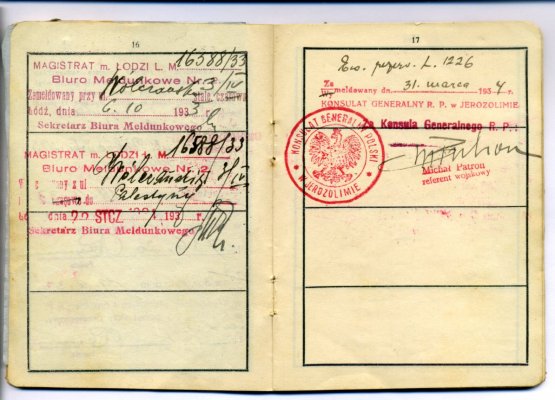 16
MAGISTRAT m. ŁODZI L. M. 16588/33
Biuro Meldunkowe Nr. 2
Zameldowany przy ul. 3/IV
Łódź, dnia 6. 10 193 r.
Sekretarz Biura Meldunkowego
MAGISTRAT m. ŁODZI L. M. 16588/33
Biuro Meldunkowe Nr. 2
z ul. 3/IV
do Palestyny
dnia 22 STCZ. 193 r.
Sekretarz Biura Meldunkowego
17
Ew. przers. L. 1226
Za
meldowany dn. 31. marca 1934 r.
KONSULAT GENERALNY R. P. w JEROZOLIMIE.
Za Konsula Generalnego R. P.:
KONSULAT GENERALNY POLSKI
W JEROZOLIMIE
Michał Patron
referent wojskowy